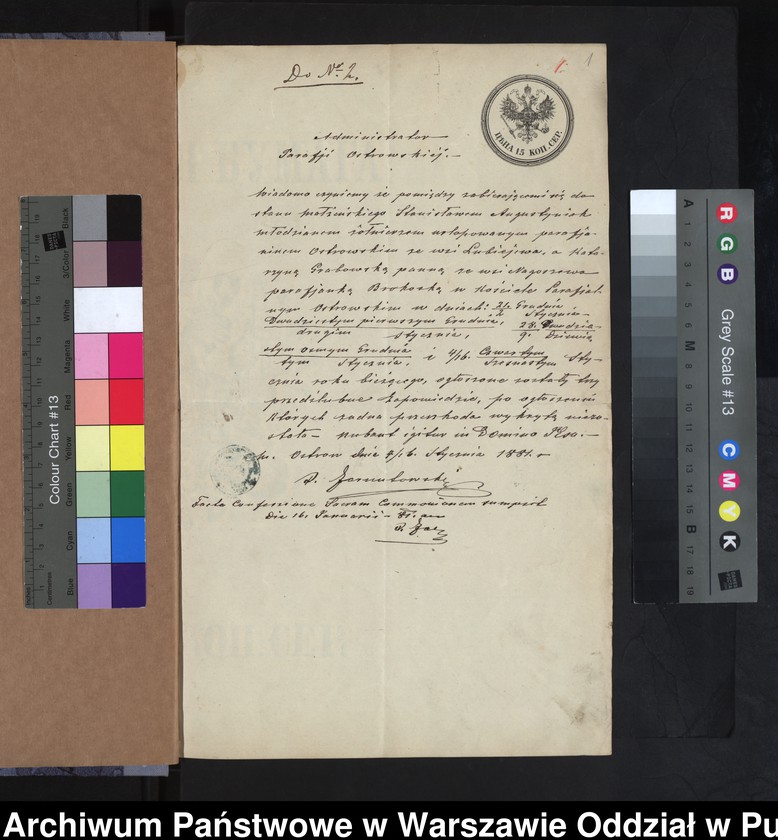 Do No 2.
1
ЦѢНА 15 КОП. СЕР.
Administrator
Parafji Ostrowskiéj.
Wiadomo czynimy że pomiędzy zabierającemi się do
stanu małżeńskiego Stanisławem Augustyniak
młodzianem żołnierzem urlopowanym parafja-
ninem Ostrowskim ze wsi Lubiejewa, a Kata-
rzyną Grabowską panną ze wsi Nagoszewa
parafjanką Brokoską w Kościele Parafjal-
nym Ostrowskim w dniach: Grudnia Stycznia
Dwudziestym pierwszym Grudnia, 28. Dwudzie-
drugim Stycznia, 9. Dziewią
stym ósmym Grudnia i 4/16. Czwartym Sty-
tym Stycznia, Szesnastym
cznia roku bieżącego, ogłoszone zostały trzy
przedślubne Zapowiedzie, po ogłoszeniu
których żadna przeszkoda wykrytą niezo-
stała – nubant igitur in Domino
Ostrow dnia 4/16. Stycznia 1881. r
Facta Confessione Sacram Communionem sumpsit
Die 16. Januarii
Colour Chart #13
Blue Cyan Green Yellow Red Magenta White 3/Color Black
Inches
Centimetres
Grey Scale #13
R G B C M Y K
A 1 2 3 4 5 6 M 8 9 10 11 12 13 14 15 B 17 18 19
Archiwum Państwowe w Warszawie Oddział w Pu